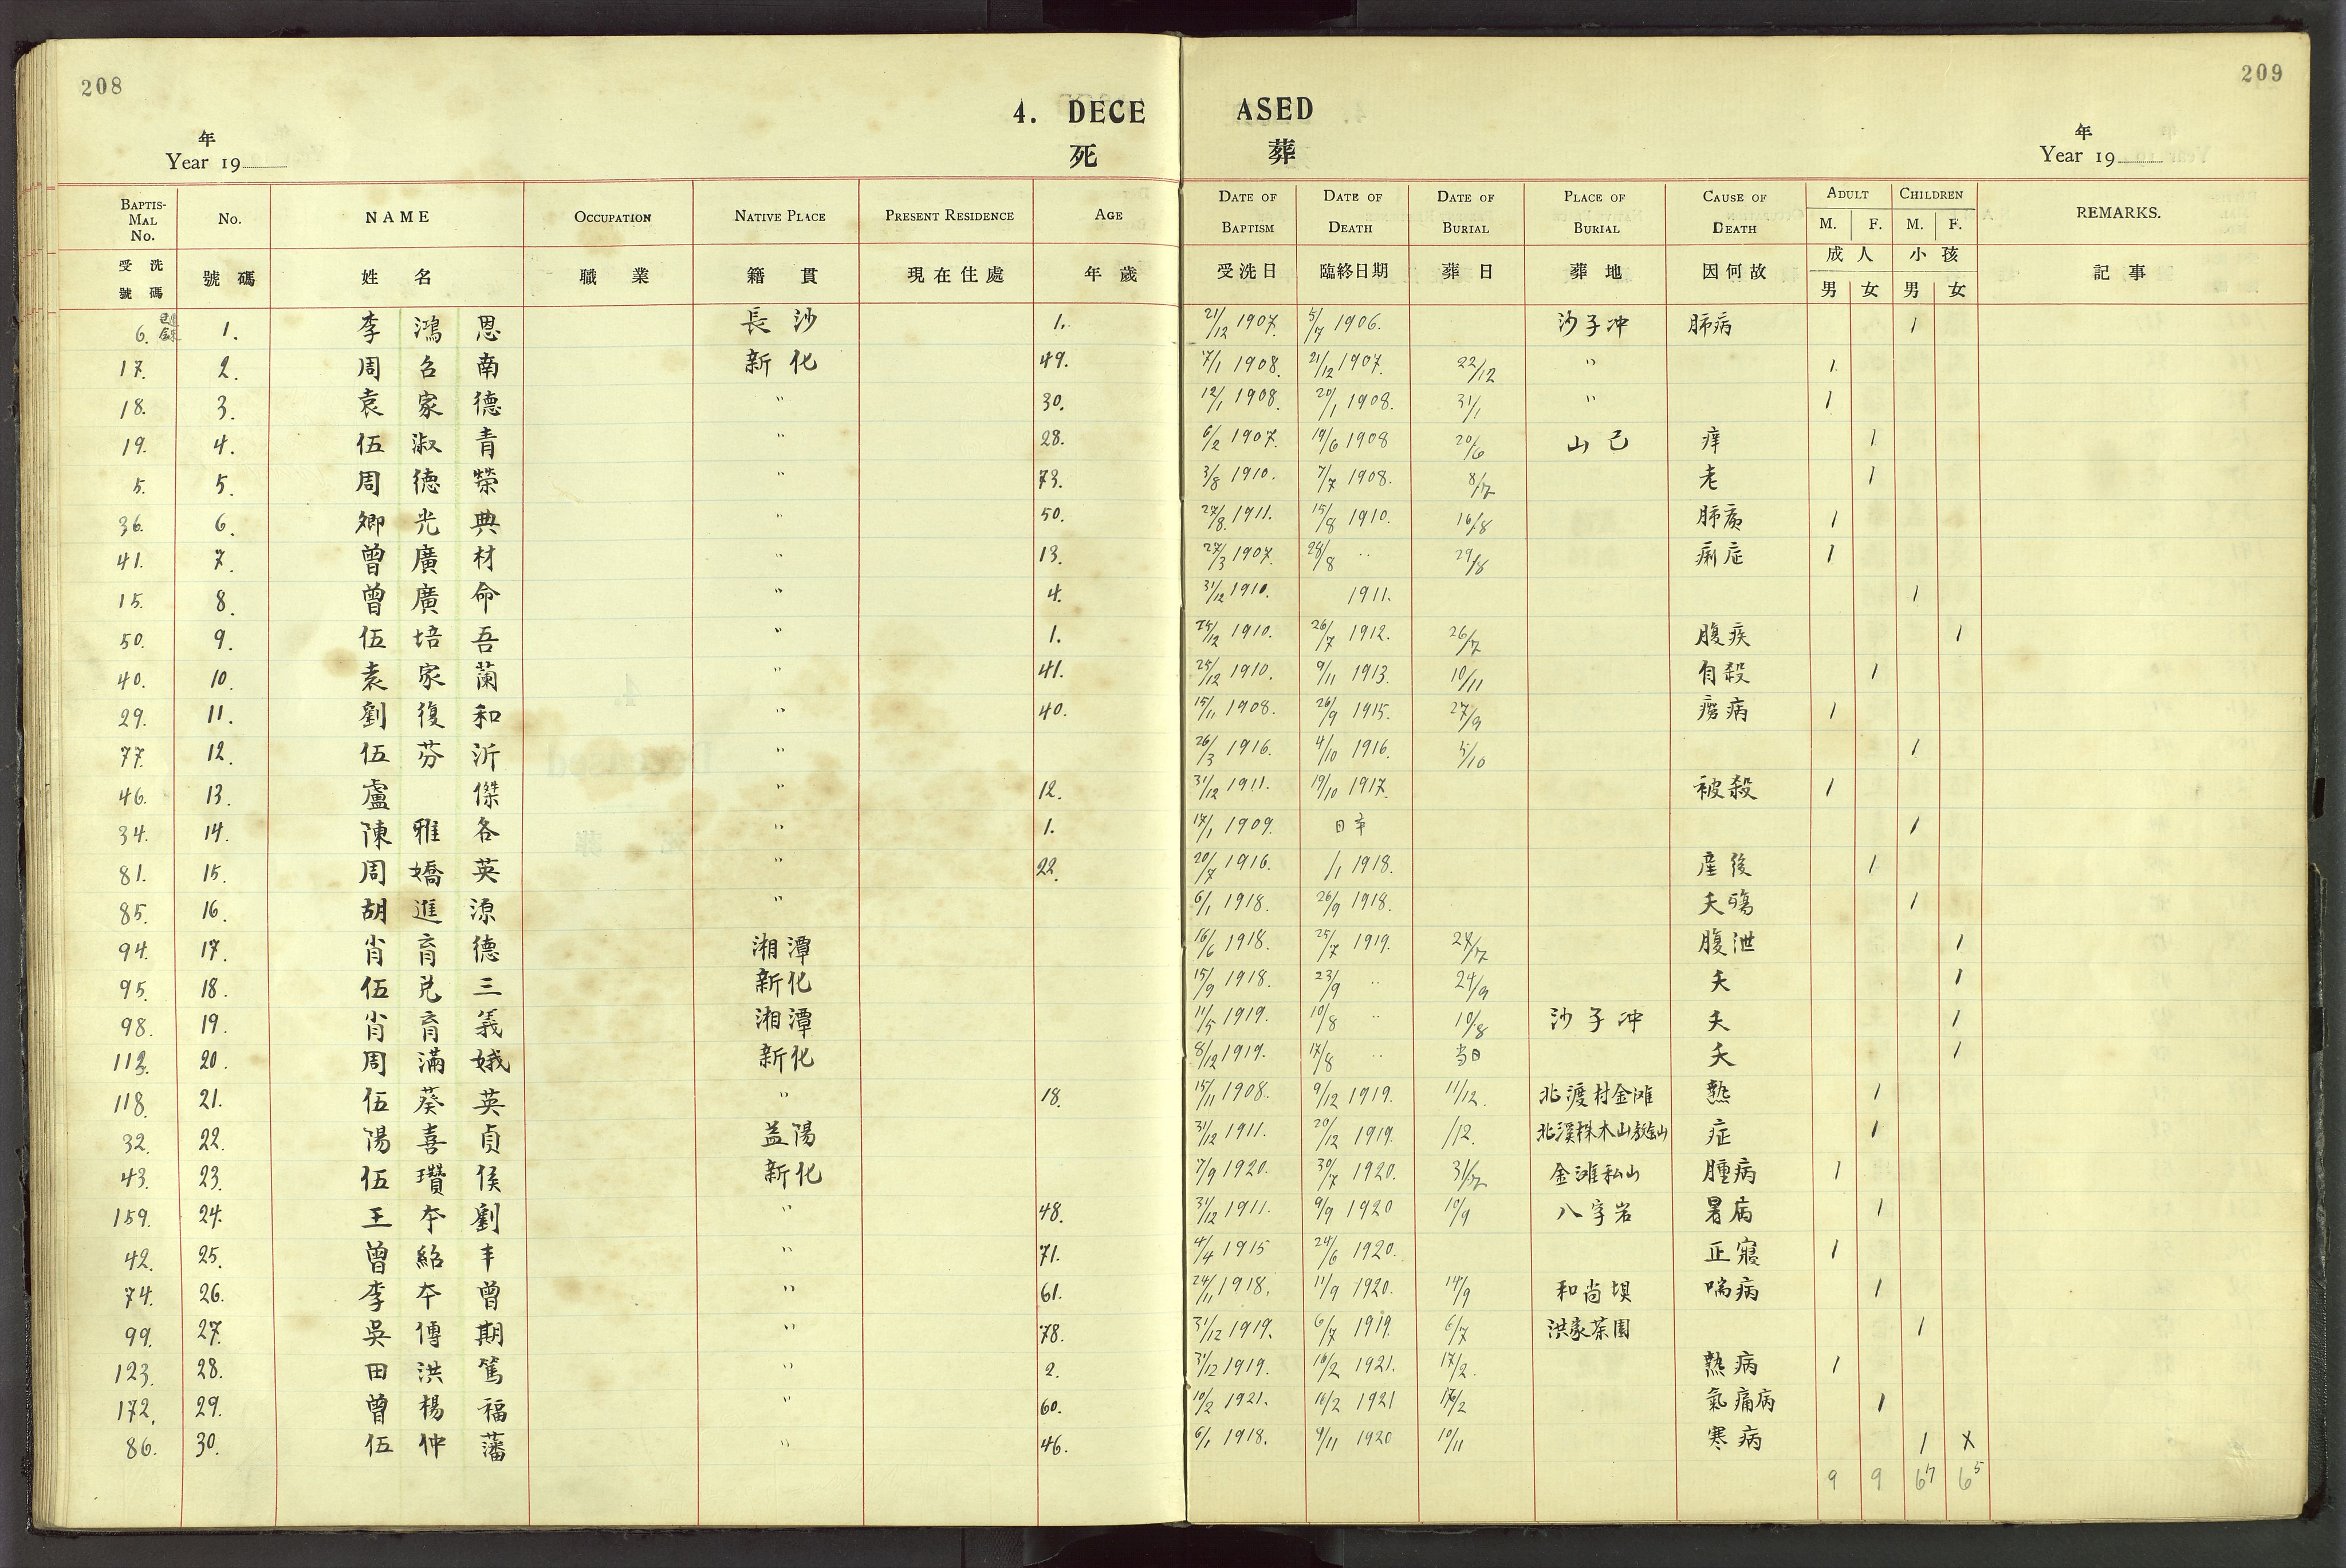 208
209
4. DECEASED
死 葬
年
Year 19
年
Year 19
BAPTISMAL No. No. NAME OCCUPATION NATIVE PLACE PRESENT RESIDENCE AGE DATE OF BAPTISM DATE OF DEATH DATE OF BURIAL PLACE OF BURIAL CAUSE OF DEATH ADULT M. F. CHILDREN M. F. REMARKS.
受洗號碼 號碼 姓名 職業 籍貫 現在住處 年歲 受洗日 臨終日期 葬日 葬地 因何故 成人 男 女 小孩 男 女 記事
6. 1. 李鴻恩 長沙 1. 21/12 1907. 5/7 1906. 沙子冲 肺病 1
17. 2. 周名南 新化 49. 7/1 1908. 21/12 1907. 22/12 " 1
18. 3. 袁家德 " 30. 12/1 1908. 20/1 1908. 31/1 " 1
19. 4. 伍淑青 " 28. 6/2 1907. 19/6 1908 20/6 山己 痒 1
5. 5. 周德榮 " 73. 3/8 1910. 7/7 1908. 8/7 老 1
36. 6. 卿光典 " 50. 27/8 1911. 15/8 1910. 16/8 肺病 1
41. 7. 曾廣材 " 13. 27/3 1907. 28/8 " 29/8 痢症 1
15. 8. 曾廣命 " 4. 31/12 1910. 1911. 1
50. 9. 伍培吾 " 1. 25/12 1910. 26/7 1912. 26/7 腹疾 1
40. 10. 袁家蘭 " 41. 25/12 1910. 9/11 1913. 10/11 自殺 1
29. 11. 劉復和 " 40. 15/11 1908. 26/9 1915. 27/9 癆病 1
77. 12. 伍芬沂 " 26/3 1916. 4/10 1916. 5/10 1
46. 13. 盧傑 " 12. 31/12 1911. 19/10 1917. 被殺 1
34. 14. 陳雅各 " 1. 17/1 1909. 1
81. 15. 周嬌英 " 22. 20/7 1916. /1 1918. 産後 1
85. 16. 胡進源 " 6/1 1918. 26/9 1918. 夭殤 1
94. 17. 肖育德 湘潭 16/6 1918. 25/7 1919. 27/7 腹泄 1
95. 18. 伍兑三 新化 15/9 1918. 23/9 " 24/9 夭 1
98. 19. 肖育義 湘潭 11/5 1919. 10/8 " 10/8 沙子冲 夭 1
113. 20. 周滿娥 新化 8/12 1919. 17/8 " 当日 夭 1
118. 21. 伍葵英 " 18. 15/11 1908. 9/12 1919. 11/12. 北渡村金滩 熱 1
32. 22. 陽喜貞 益陽 31/12 1911. 20/12 1919. /12. 北溪株木山 症 1
43. 23. 伍瓚侯 新化 7/9 1920. 30/7 1920. 31/7 金滩私山 腫病 1
159. 24. 王夲劉 " 48. 31/12 1911. 9/9 1920 10/9 八字岩 暑病 1
42. 25. 曾紹丰 " 71. 4/4 1915 24/6 1920. 正寢 1
74. 26. 李夲曾 " 61. 24/11 1918. 11/9 1920. 14/9 和尚埧 喘病 1
99. 27. 吳傳期 " 78. 31/12 1919. 6/7 1919. 6/7 洪家茶園 1
123. 28. 田洪篤 " 2. 31/12 1919. 16/2 1921. 17/2. 熱病 1
172. 29. 曾楊福 " 60. 10/2 1921. 16/2 1921 17/2 氣痛病 1
86. 30. 伍仲藩 " 46. 6/1 1918. 9/11 1920 10/11 寒病 1 X
9 9 67 65